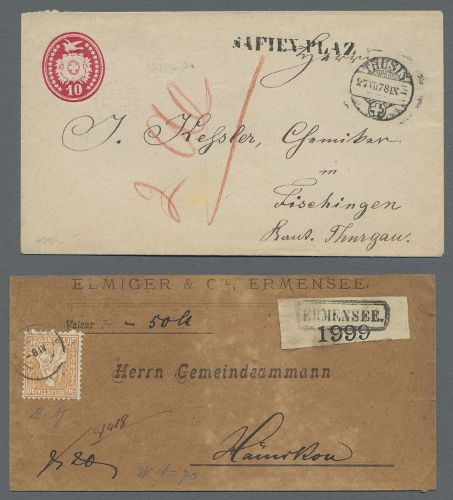 10
SAFIEN-PLAZ
THUSIS
27.VII.78.IX
Herrn
J. Kessler, Chemiker
in
Fischingen
Kant. Thurgau.
ELMIGER & Cie, ERMENSEE.
Valeur Fr. - 50 Ct
ERMENSEE.
1999
Herrn Gemeindeammann
Hämikon
1918